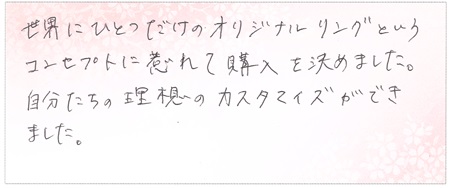 世界にひとつだけのオリジナルリングという
コンセプトに惹れて購入を決めました。
自分たちの理想のカスタマイズができ
ました。